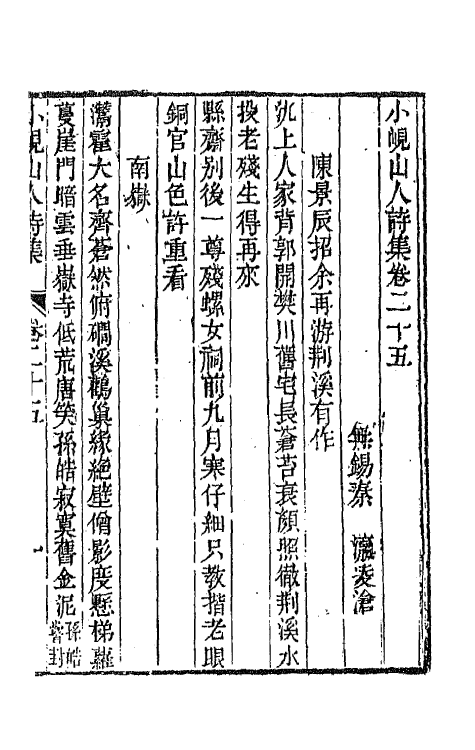 小峴山人詩集卷二十五
無錫秦　瀛凌滄
陳景辰招余再游荆溪有作
氿上人家背郭開樊川舊宅長蒼苔衰顏照徹荆溪水
投老殘生得再來
縣齋别後一尊殘螺女祠前九月寒仔細只教揩老眼
銅官山色許重看
南嶽
灊霍大名齊蒼然俯磵溪鶴巢緣絶壁僧影度懸梯蘿
蔓崖門暗雲垂嶽寺低荒唐笑孫皓寂寞舊金泥孫皓嘗封
小峴山人詩集　卷二十五　一